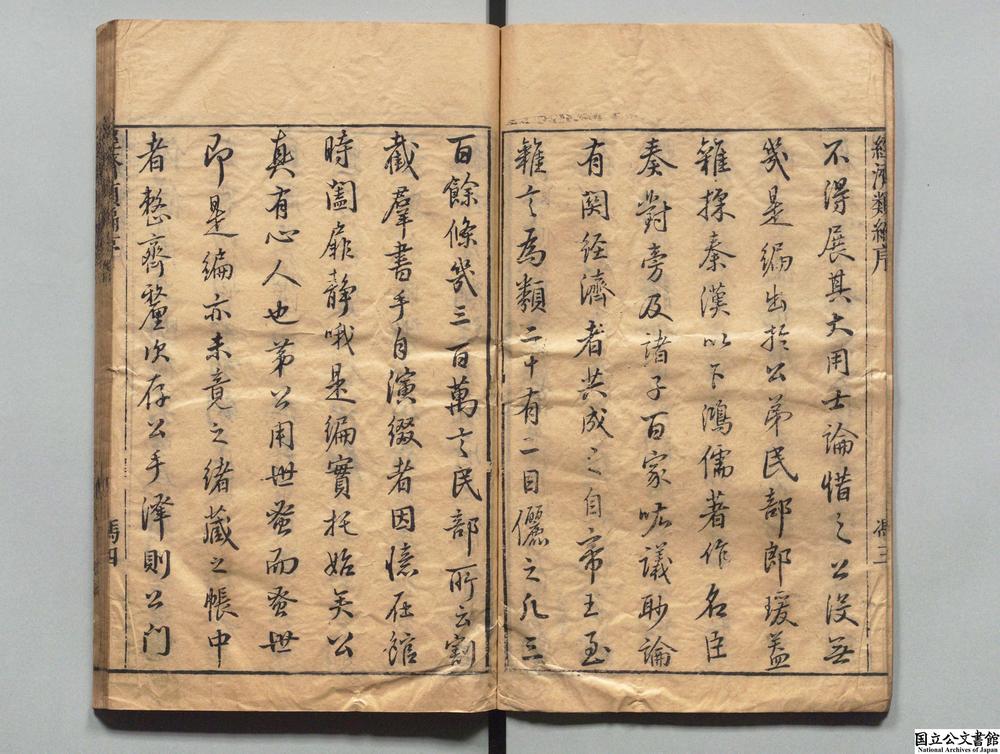 經濟類編序
馮三
不得展其大用士論惜之公沒無
幾是編出於公弟民部郎瑗蓋
雜採秦漢以下鴻儒著作名臣
奏對旁及諸子百家吰議眇論
有関经濟者共成之自帝王至
雜言爲類二十有二目儷之凡三
百餘條幾三百萬言民部所云割
截羣書手自演綴者因憶在館
時闔扉静哦是編實托始矣公
真有心人也第公用世蚤而蚤世
即是編亦未竟之緒藏之帳中
者整齊釐次存公手澤則公门
經濟類編序
馮四
国立公文書館
National Archives of Japan